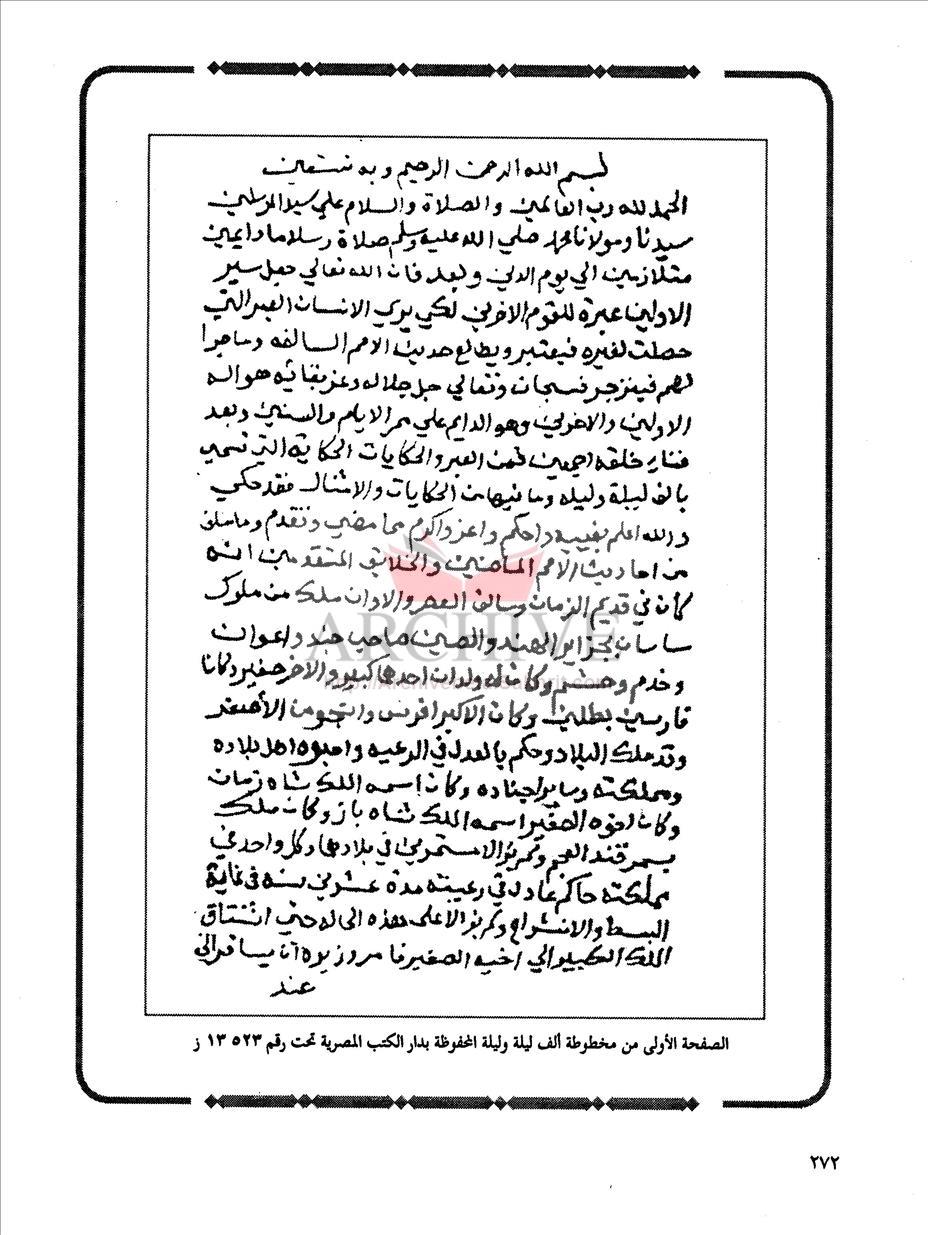 بسم الله الرحمن الرحيم وبه نستعين
الحمد لله رب العالمين والصلاة والسلام علي سيد المرسلين
سيدنا ومولانا محمد صلي الله عليه وسلم صلاة وسلاما دايمين
متلازمين الي يوم الدين وبعد فان الله تعالي جعل سير
الاولين عبرة للقوم الاخرين لكي يري الانسان العبر التي
حصلت لغيره فيعتبر ويطالع حديث الامم السالفه وما جرا
لهم فينزجر فسبحان وتعالي جل جلاله وعز بقائه هو اله
الاولين والاخرين وهو الدايم علي ممر الايام والسنين وبعد
خلقه اجمعين فمن العبر والحكايات الحكاية التي تسمي
بالف ليلة وليله وما فيها من الحكايات والامثال فقد حكي
والله اعلم بغيبه واحكم واعز واكرم مما مضي وتقدم وما سلف
من احاديث الامم الماضين والخلايق المتقدمين انه
كان في قديم الزمان وسالف العصر والاوان ملك من ملوك
ساسان بجزاير الهند والصين صاحب جند واعوان
وخدم وحشم وكان له ولدان احدهما كبير والاخر صغير وكانا
فارسين بطلين وكان الاكبر افرس من الأصغر
وقد ملك البلاد وحكم بالعدل في الرعيه واحبوه اهل بلاده
ومملكته وساير اجناده وكان اسمه الملك شاه زمان
وكان اخوه الصغير اسمه الملك شاه باز وكان ملك
بسمرقند العجم ولم يزالا مستمرين في بلادهما وكل واحد في
مملكته حاكم عادل في رعيته مدة عشرين سنه في غاية
البسط والانشراح ولم يزالا علي هذه الحاله حتي اشتاق
الملك الكبير الي اخيه الصغير فامر وزيره ان يسافر الي
عند
ARCHIVE
الصفحة الأولى من مخطوطة ألف ليلة وليلة المحفوظة بدار الكتب المصرية تحت رقم ١٣٥٢٣ ز
٢٧٢